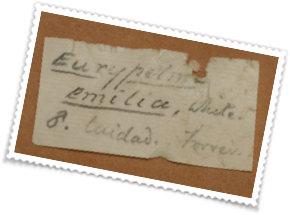 Eurypelma
Emilia, White.
8. Cuidad. Forrer.